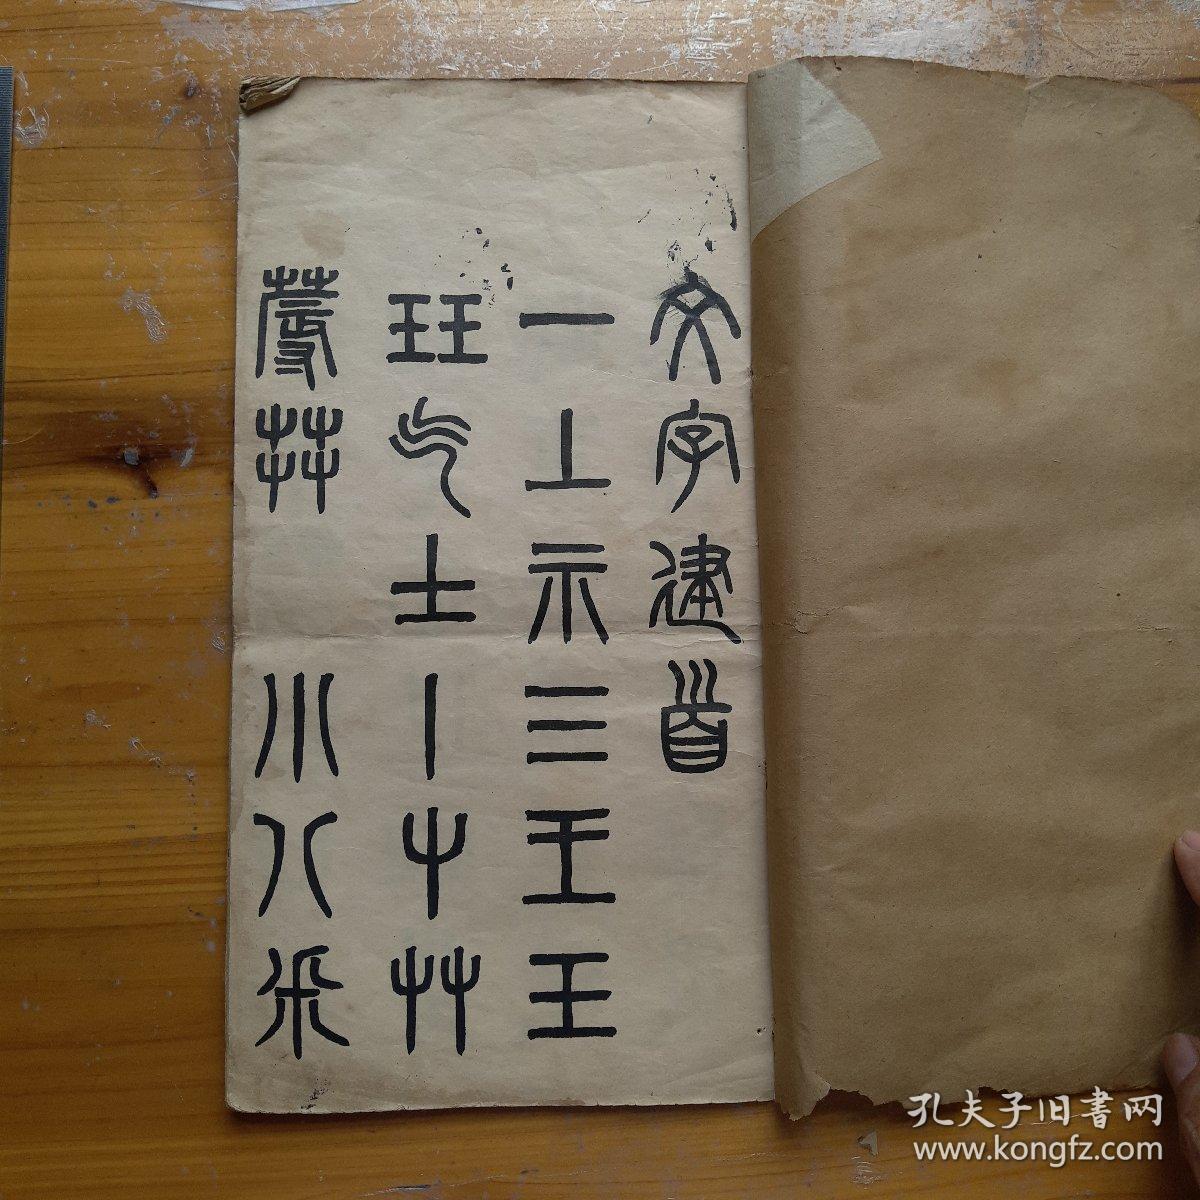 文字建首
一上示三王玉
玨气士丨屮艸
蓐茻小八釆
孔夫子旧書网
www.kongfz.com